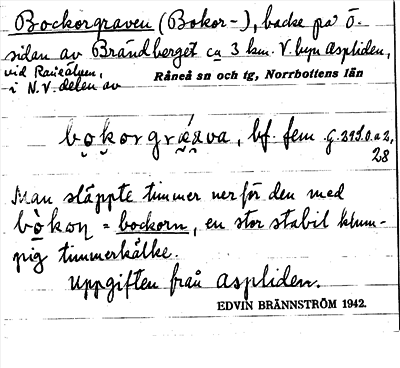 Bockorgraven (Bokor-), backe på Ö.
sidan av Brändberget ca 3 km. V. byn Aspliden,
vid Råneälven,
i N.V. delen av
Råneå sn och tg, Norrbottens län
bo̜k̬orgrá̰ava, bf. fem. G. 391.0.a2,
28
Man släppte timmer ner för den med
bòkoɳ = bockorn, en stor stabil klum-
pig timmerkälke.
Uppgiften från Aspliden.
EDVIN BRÄNNSTRÖM 1942.